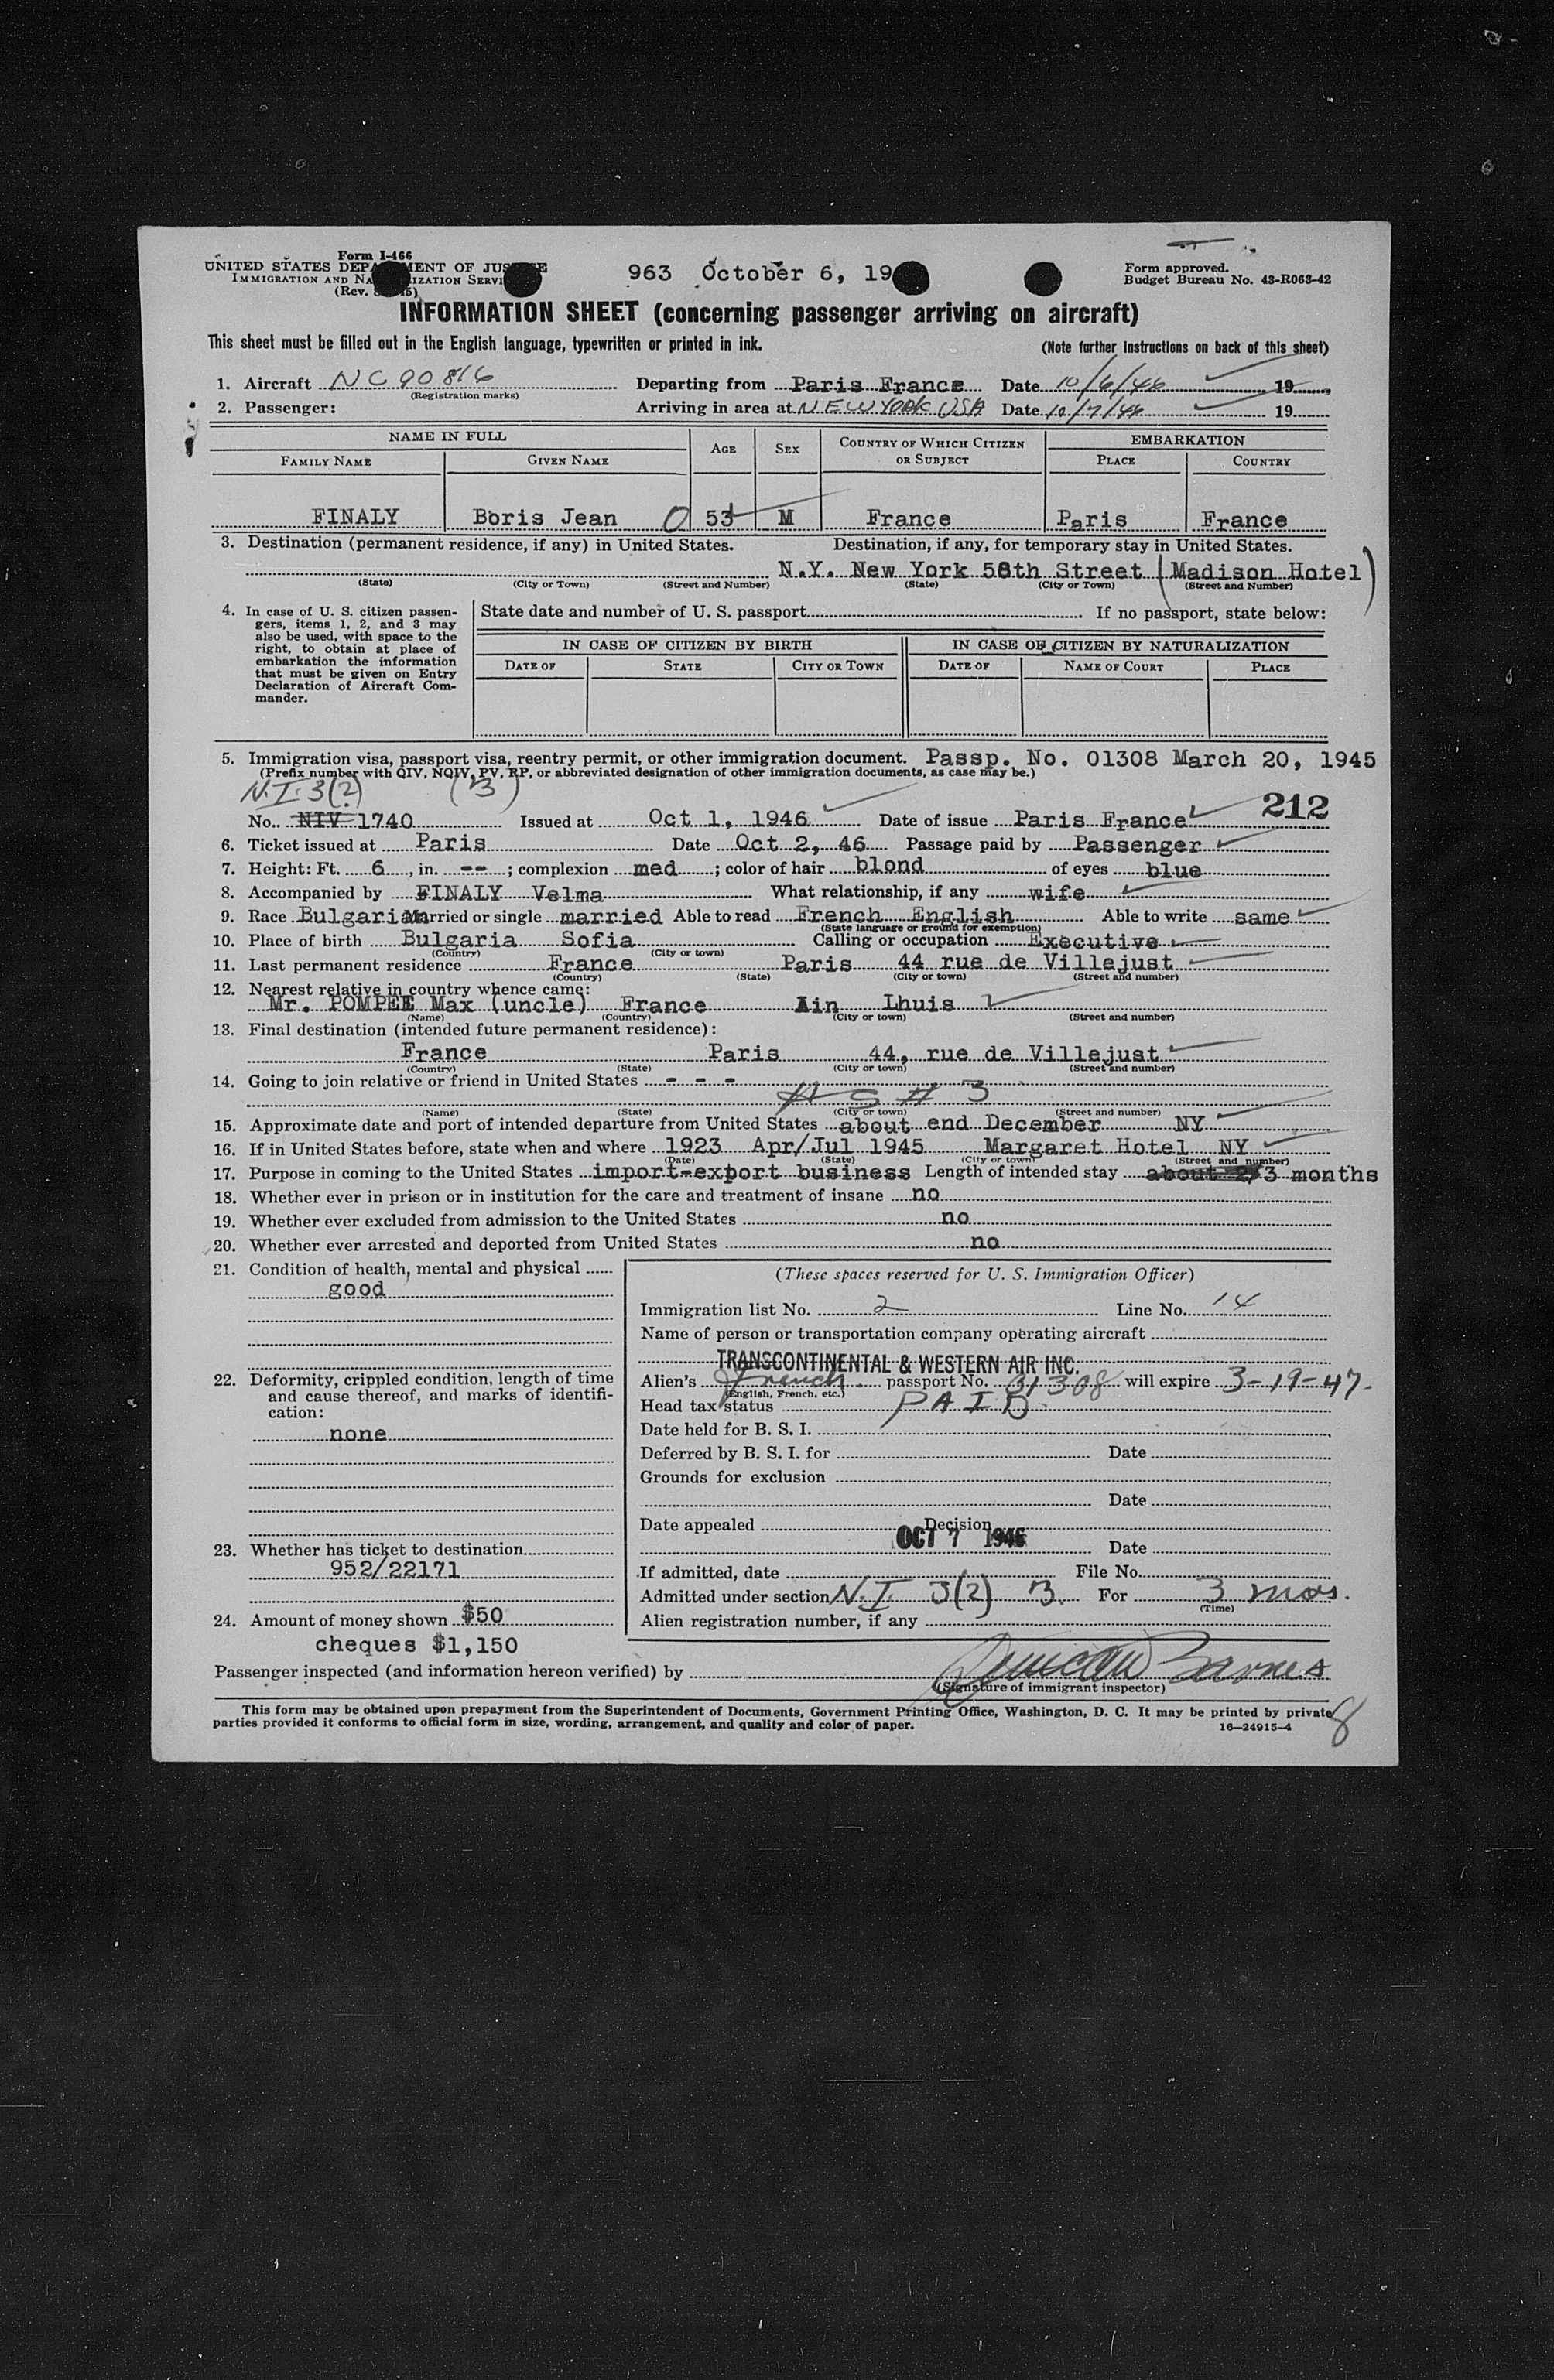 Form I-466
UNITED STATES DEPA MENT OF JUS E
IMMIGRATION AND NA IZATION SERVI
(Rev. 5)
963 October 6, 19
Form approved.
Budget Bureau No. 43-R063-42
INFORMATION SHEET (concerning passenger arriving on aircraft)
This sheet must be filled out in the English language, typewritten or printed in ink.
(Note further instructions on back of this sheet)
1. Aircraft NC90816 Departing from Paris France Date 10/6/46 19
(Registration marks)
2. Passenger: Arriving in area at NEW YORK USA Date 10/7/46 19
NAME IN FULL AGE SEX COUNTRY OF WHICH CITIZEN OR SUBJECT EMBARKATION
FAMILY NAME GIVEN NAME PLACE COUNTRY
FINALY Boris Jean 0 53 M France Paris France
3. Destination (permanent residence, if any) in United States. Destination, if any, for temporary stay in United States.
N.Y. New York 58th Street (Madison Hotel)
(State) (City or Town) (Street and Number) (State) (City or Town) (Street and Number)
4. In case of U. S. citizen passengers, items 1, 2, and 3 may also be used, with space to the right, to obtain at place of embarkation the information that must be given on Entry Declaration of Aircraft Commander.
State date and number of U. S. passport If no passport, state below:
IN CASE OF CITIZEN BY BIRTH IN CASE OF CITIZEN BY NATURALIZATION
DATE OF STATE CITY OR TOWN DATE OF NAME OF COURT PLACE
5. Immigration visa, passport visa, reentry permit, or other immigration document. Passp. No. 01308 March 20, 1945
(Prefix number with QIV, NQIV, PV, RP, or abbreviated designation of other immigration documents, as case may be.)
N.I. 3(2) (B) 212
No. NIV 1740 Issued at Oct 1, 1946 Date of issue Paris France
6. Ticket issued at Paris Date Oct 2, 46 Passage paid by Passenger
7. Height: Ft. 6, in. --; complexion med; color of hair blond of eyes blue
8. Accompanied by FINALY Velma What relationship, if any wife
9. Race Bulgarian Married or single married Able to read French English Able to write same
(State language or ground for exemption)
10. Place of birth Bulgaria Sofia Calling or occupation Executive
(Country) (City or town)
11. Last permanent residence France Paris 44 rue de Villejust
(Country) (State) (City or town) (Street and number)
12. Nearest relative in country whence came:
Mr. POMPEE Max (uncle) France Ain Lhuis
(Name) (Country) (City or town) (Street and number)
13. Final destination (intended future permanent residence):
France Paris 44, rue de Villejust
(Country) (State) (City or town) (Street and number)
14. Going to join relative or friend in United States - - -
(Name) (State) (City or town) (Street and number)
15. Approximate date and port of intended departure from United States about end December NY
16. If in United States before, state when and where 1923 Apr/Jul 1945 Margaret Hotel NY
(Date) (State) (City or town) (Street and number)
17. Purpose in coming to the United States import-export business Length of intended stay about 2/3 months
18. Whether ever in prison or in institution for the care and treatment of insane no
19. Whether ever excluded from admission to the United States no
20. Whether ever arrested and deported from United States no
21. Condition of health, mental and physical
good
22. Deformity, crippled condition, length of time and cause thereof, and marks of identification:
none
23. Whether has ticket to destination
952/22171
24. Amount of money shown $50
cheques $1,150
(These spaces reserved for U. S. Immigration Officer)
Immigration list No. 2 Line No. 14
Name of person or transportation company operating aircraft
TRANSCONTINENTAL & WESTERN AIR INC.
Alien's French passport No. 01308 will expire 3-19-47.
(English, French, etc.)
Head tax status PAID
Date held for B. S. I.
Deferred by B. S. I. for Date
Grounds for exclusion
Date
Date appealed Decision
OCT 7 1946 Date
If admitted, date File No.
Admitted under section N.I. 3(2) B. For 3 mos.
(Time)
Alien registration number, if any
Passenger inspected (and information hereon verified) by
(Signature of immigrant inspector)
This form may be obtained upon prepayment from the Superintendent of Documents, Government Printing Office, Washington, D. C. It may be printed by private
parties provided it conforms to official form in size, wording, arrangement, and quality and color of paper. 16—24915-4
8